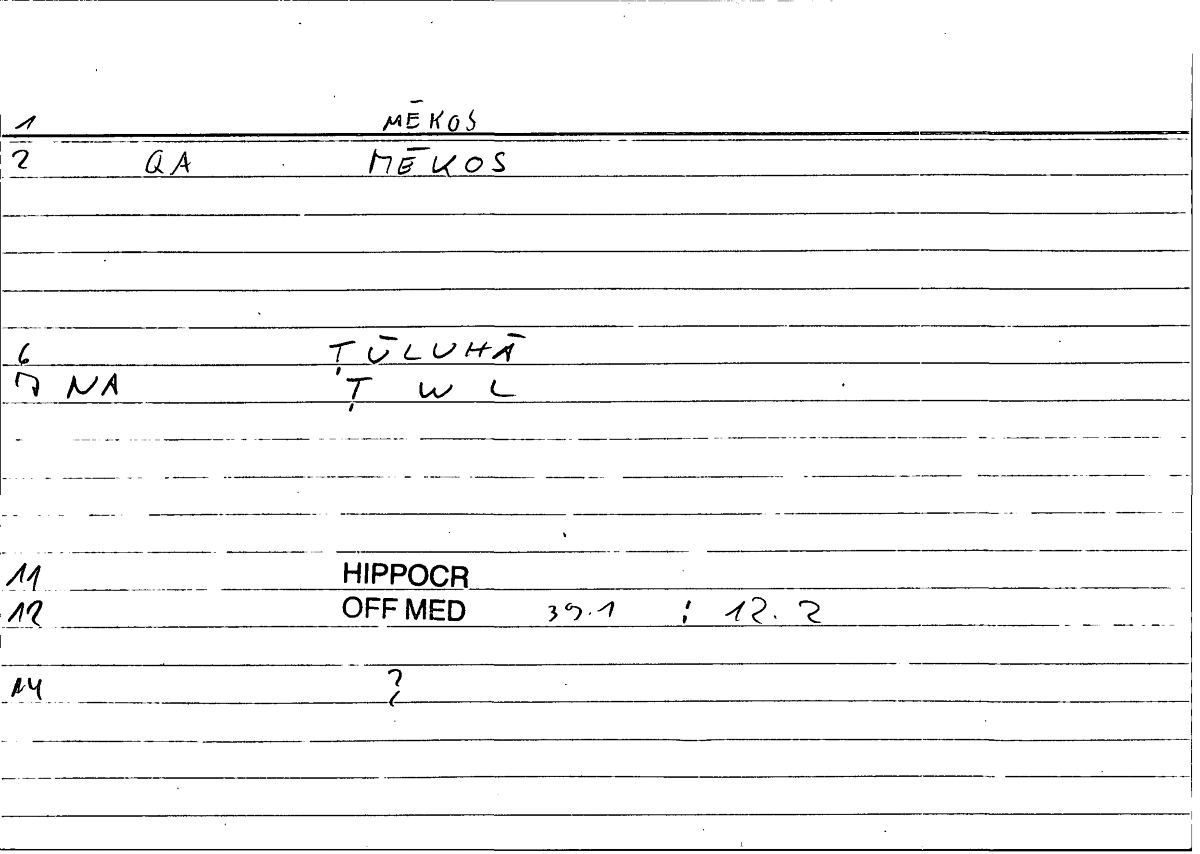 1 MĒKOS
2 QA MĒKOS
6 ṬŪLUHĀ
7 NA Ṭ W L
11 HIPPOCR
12 OFF MED 39.1 ; 12.2
14 ?